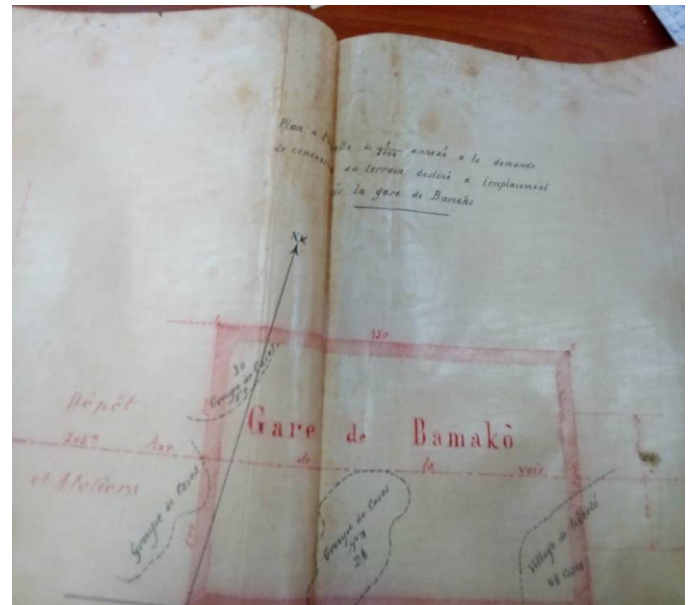 Plan à l'échelle de 1/2000 annexé à la demande
de concession du terrain destiné à l'emplacement
de la gare de Bamako
N
350
30
Groupe de Cases
Dépôt
Gare de Bamakò
Axe de la voie
et Ateliers
Groupe de Cases
Groupe de Cases
28
Village de liberté
48 Cases